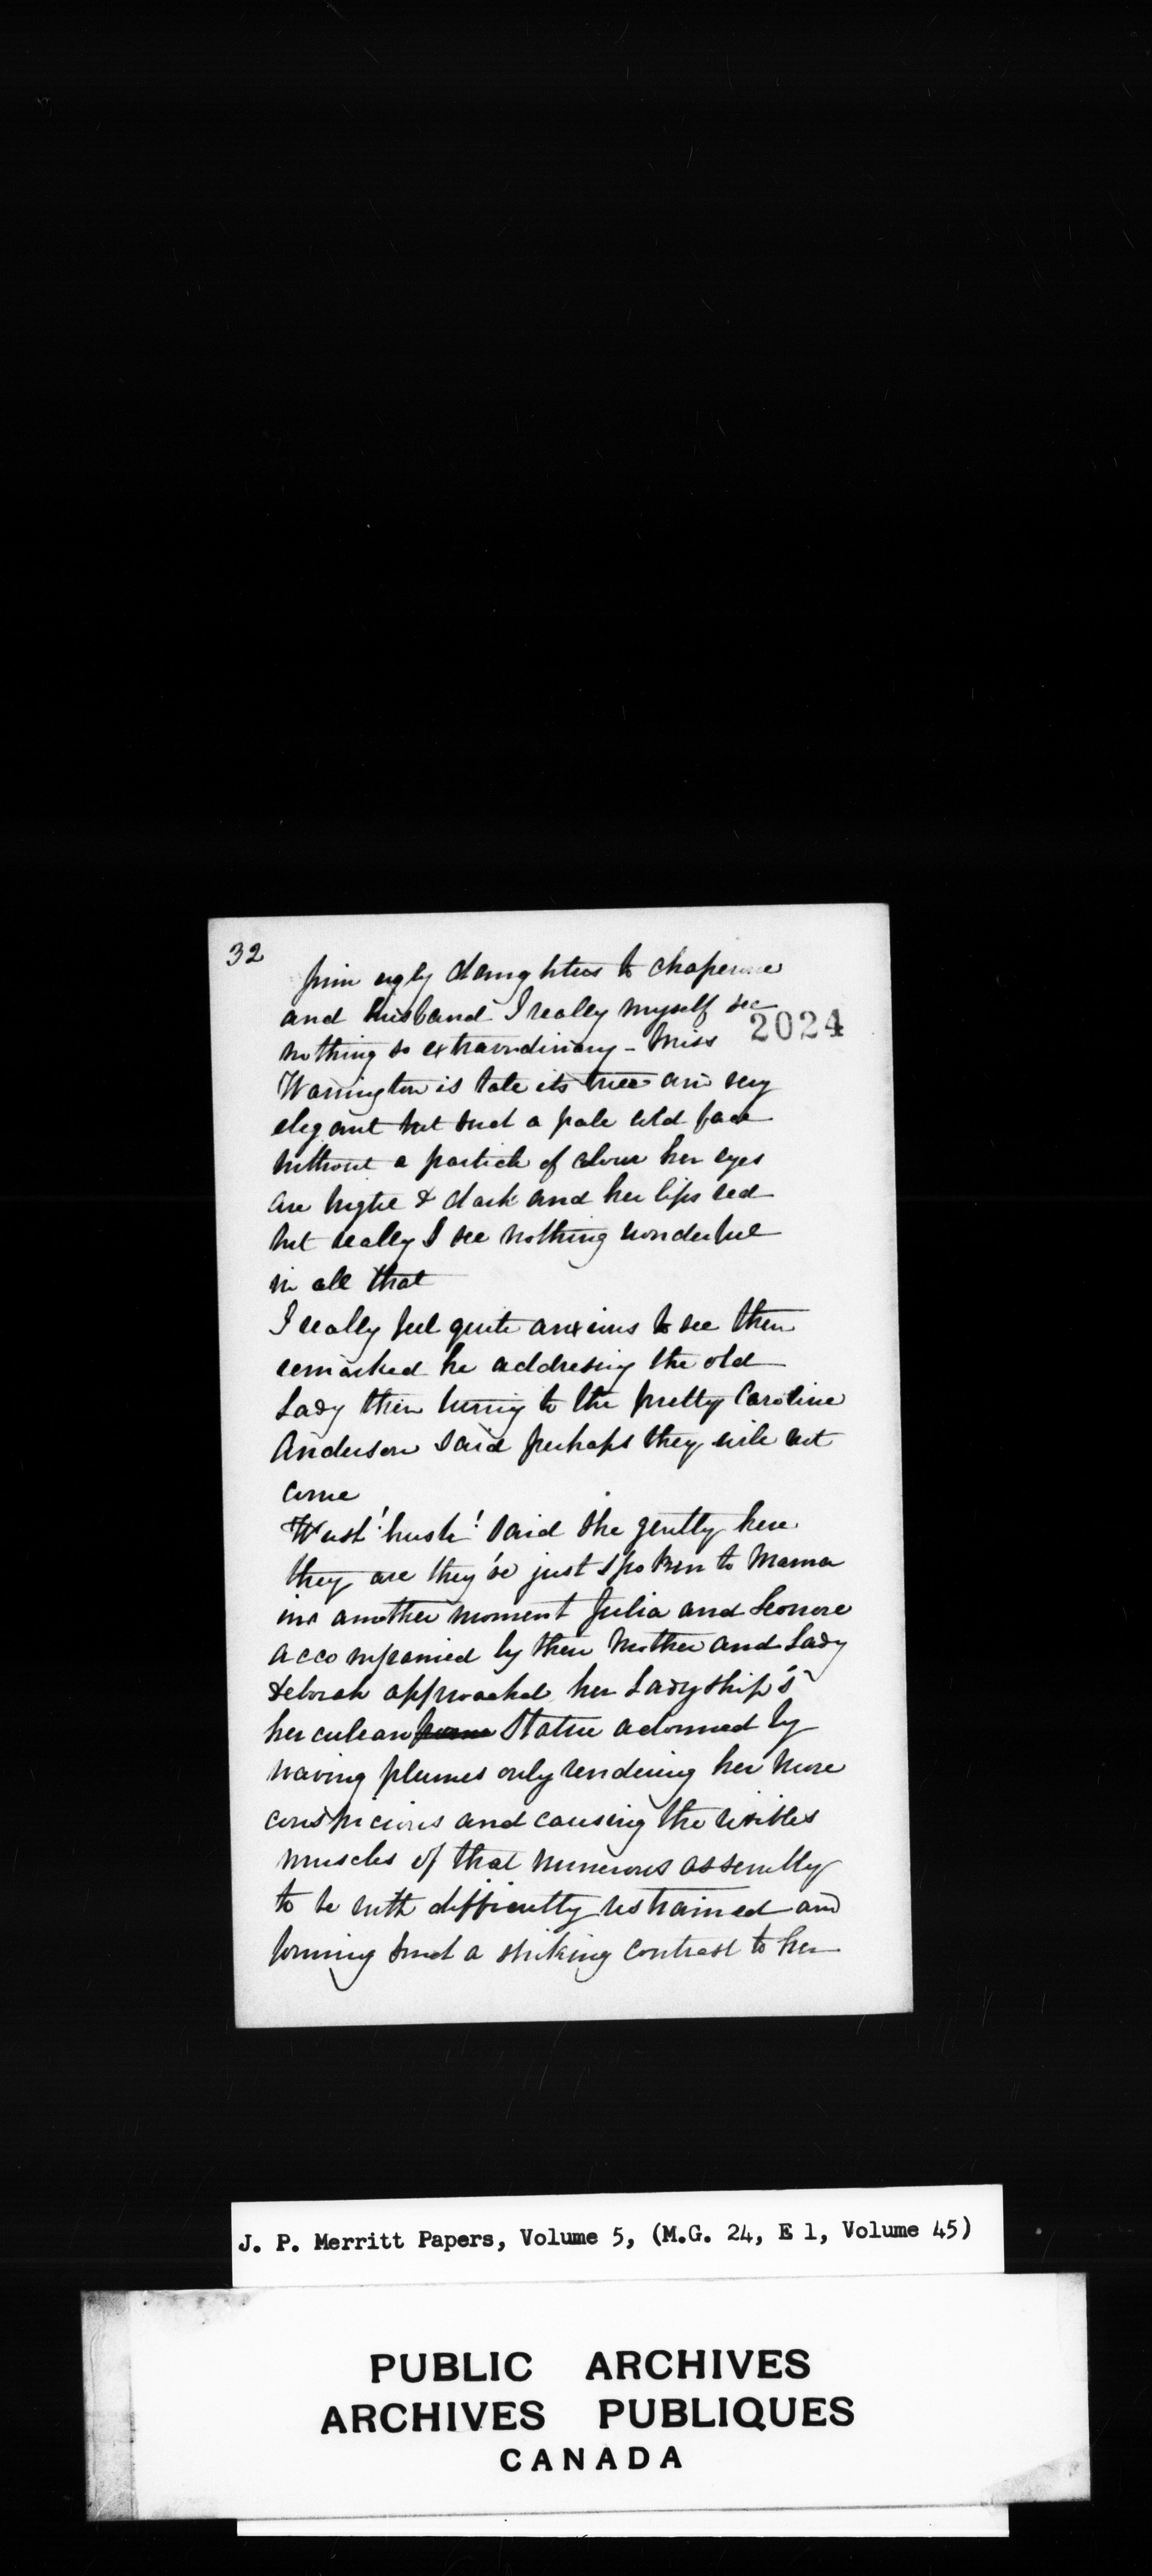 32
prim ugly daughters to chaperone
and husband I really myself see
2024
nothing so extraordinary - Miss
Warrington is tale its true and very
elegant but such a pale cold face
without a particle of colour her eyes
are bright & dark and her lips red
but really I see nothing wonderful
in all that
I really feel quite anxious to see them
remarked he addresing the old
Lady then turing to the pretty Caroline
Anderson said perhaps they will not
come
Hush! hush! said she gently here
they are they've just spoken to Mama
in another moment Julia and Leonore
accompanied by their Mother and Lady
Deborah approached her Ladyship's
herculean Statue adorned by
waving plumes only rendering her more
conspicious and causing the risibles
muscles of that numerous assembly
to be with difficulty restrained and
forming such a striking contrast to her
J. P. Merritt Papers, Volume 5, (M.G. 24, E 1, Volume 45)
PUBLIC ARCHIVES
ARCHIVES PUBLIQUES
CANADA